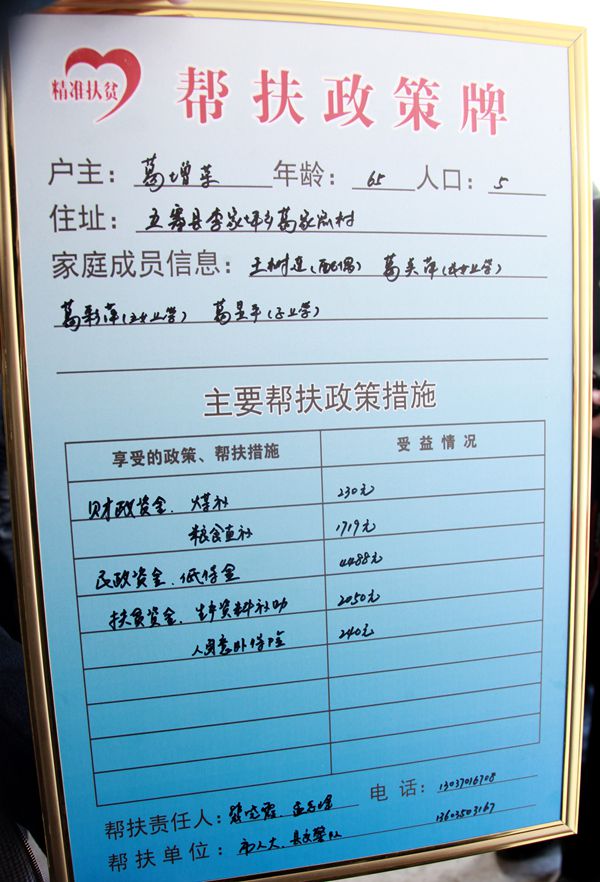 精准扶贫
帮扶政策牌
户主：葛增荣 年龄：65 人口：5
住址：五寨县李家坪乡葛家洼村
家庭成员信息：王树连（配偶） 葛美萍（长女 业学）
葛彩萍（次女 业学） 葛星平（子 业学）
主要帮扶政策措施
享受的政策、帮扶措施 受益情况
财政资金、煤补 230元
粮食直补 1719元
民政资金、低保金 4488元
扶贫资金、生产资料补助 2050元
人身意外保险金 240元
帮扶责任人： 电话：13037016708
帮扶单位：市人大、县交警队 13603503167